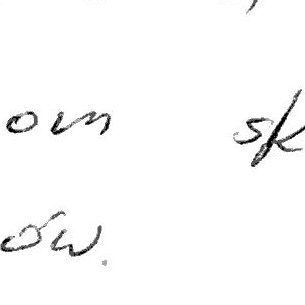 om sk
ów.